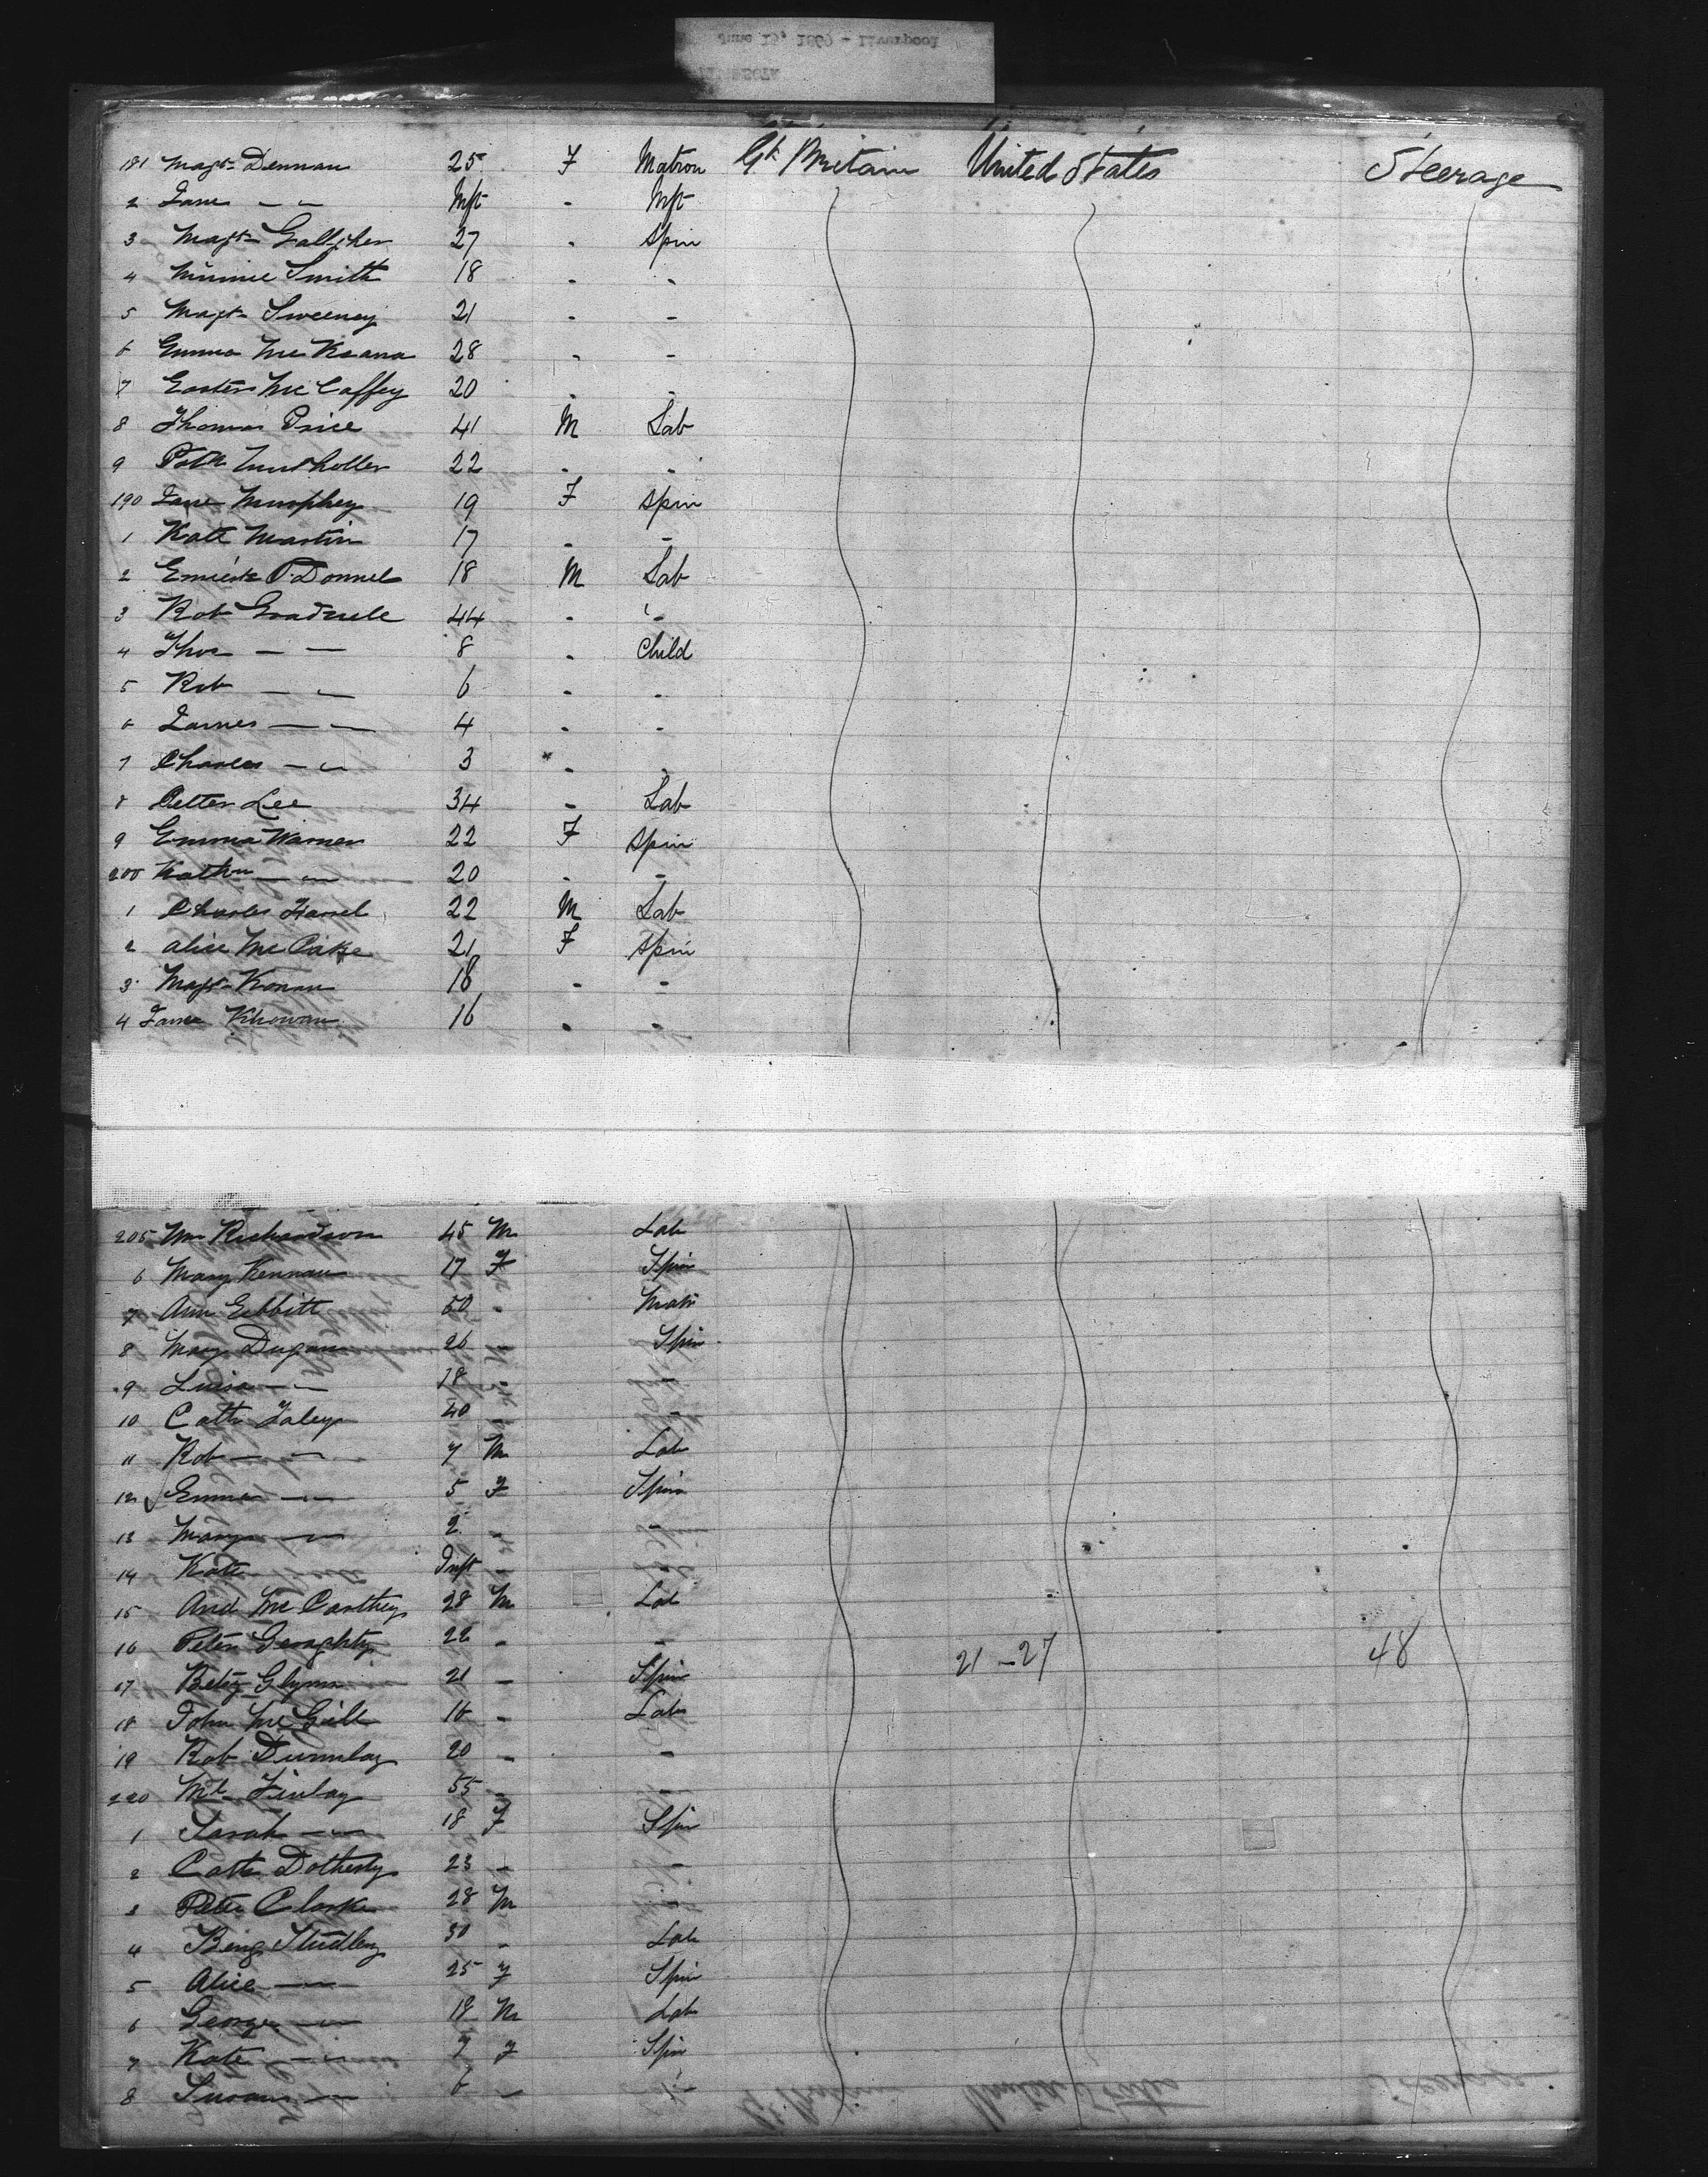 June 15, 1869 - Liverpool
181 Magt Dennan 25 F Matron Gt Britain United States Steerage
2 Jane - - Inft - Inft
3 Magt Gallagher 27 - Spin
4 Minnie Smith 18 - -
5 Magt Sweeney 21 - -
6 Emma McKeana 28 - -
7 Easter McCaffey 20 - -
8 Thomas Price 41 M Lab
9 Patk 22 - -
190 Jane Murphey 19 F Spin
1 Kate Martin 17 - -
2 O'Donnel 18 M Lab
3 Rob 44 - -
4 Thos - - 8 - Child
5 Rob - - 6 - -
6 James - - 4 - -
7 Charles - - 3 - -
8 Petter Lee 34 - Lab
9 Emma Warner 22 F Spin
200 Kathn - - 20 - -
1 Charles 22 M Lab
2 Alice McCake 21 F Spin
3 Magt Konan 18 - -
4 Jane 16 - -
205 Wm Richardson 45 M Lab
6 Mary Kennan 17 F Spin
7 Ann Gibbitt 50 - Matr
8 Mary Dugan 26 - Spin
9 Luisa - - 18 - -
10 Cath Faley 40 - -
11 Rob - - 7 M Lab
12 Emma - - 5 F Spin
13 Mary - - 2 - -
14 Kate Inft - -
15 And McCarthey 28 M Lab
16 Peter Geraghty 22 - - 21-27 48
17 Betsy Glynn 21 - Spin
18 John McGill 16 - Lab
19 Rob Dunnlay 20 - -
220 Ml Finlay 55 - -
1 Sarah - - 18 F Spin
2 Cath Dotherty 23 - -
3 Peter Clarke 28 M -
4 Benj Studley 30 - Lab
5 Alice - - 25 F Spin
6 George - - 19 M Lab
7 Kate - - 7 F Spin
8 Susan - - 6 - -